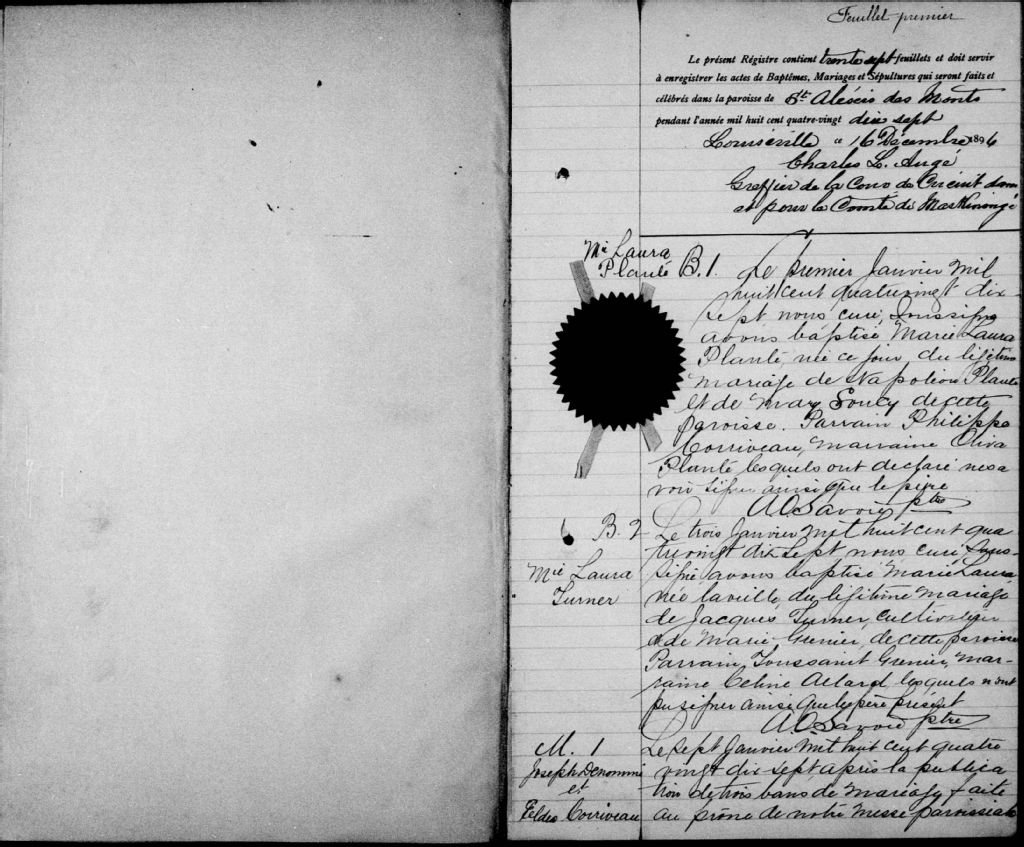 Feuillet premier
Le présent Régistre contient trente sept feuillets et doit servir
à enregistrer les actes de Baptêmes, Mariages et Sépultures qui seront faits et
célébrés dans la paroisse de St Alexis des Monts
pendant l'année mil huit cent quatre-vingt dix sept
Louiseville ce 16 Décembre 1896
Charles L. Augé
Greffier de la Cour de Circuit dans
et pour le Comté de Maskinongé
Mie Laura
Planté
B. 1. Le premier Janvier Mil
huit cent quatrevingt dix-
sept nous curé, soussigné
avons baptisé Marie Laura
Planté née ce jour, du légitime
mariage de Napoléon Planté
et de Mary Soucy de cette
paroisse. Parrain Philippe
Corriveau, marraine Oliva
Planté lesquels ont déclaré ne sa
voir signer ainsi que le père
A O Savoie ptre
B. 2
Mie Laura
Turner
Le trois Janvier Mil huit cent qua
trevingt dix sept nous curé, sous-
signé, avons baptisé Marie Laura
née la veille, du légitime mariage
de Jacques Turner, cultivateur
et de Marie Grenier, de cette paroisse
Parrain, Toussaint Grenier, mar-
raine Céline Allard, lesquels n'ont
pu signer ainsi que le père présent
A O Savoie ptre
M. 1
Joseph Denommé
et
Corriveau
Le sept Janvier Mil huit cent quatre
vingt dix sept après la publica
tion de trois bans de mariage faite
au prône de notre Messe paroissiale